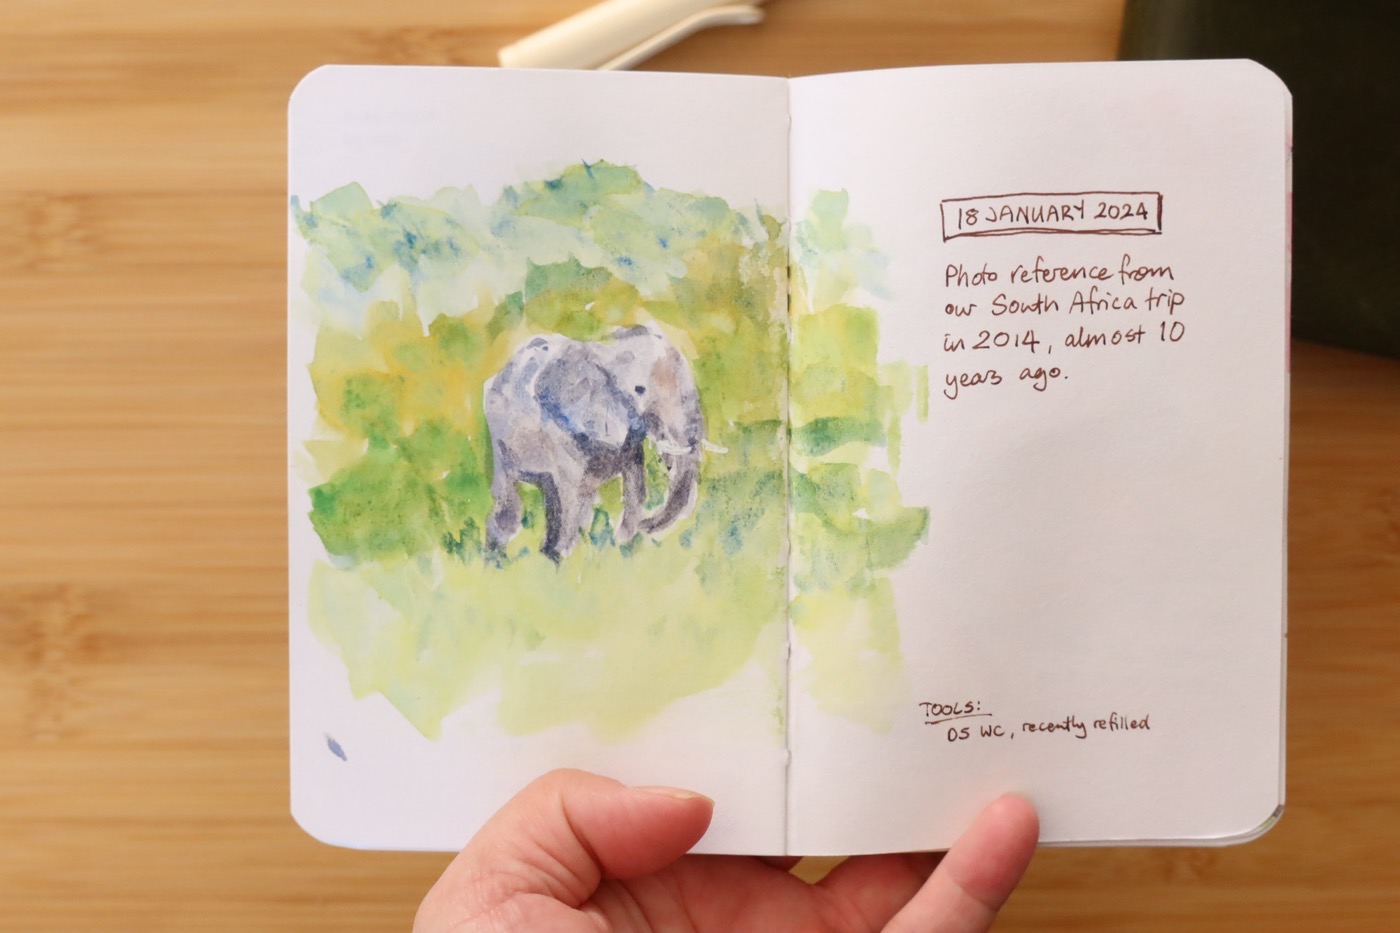 18 JANUARY 2024
Photo reference from
our South Africa trip
in 2014, almost 10
years ago.
TOOLS:
DS WC, recently refilled